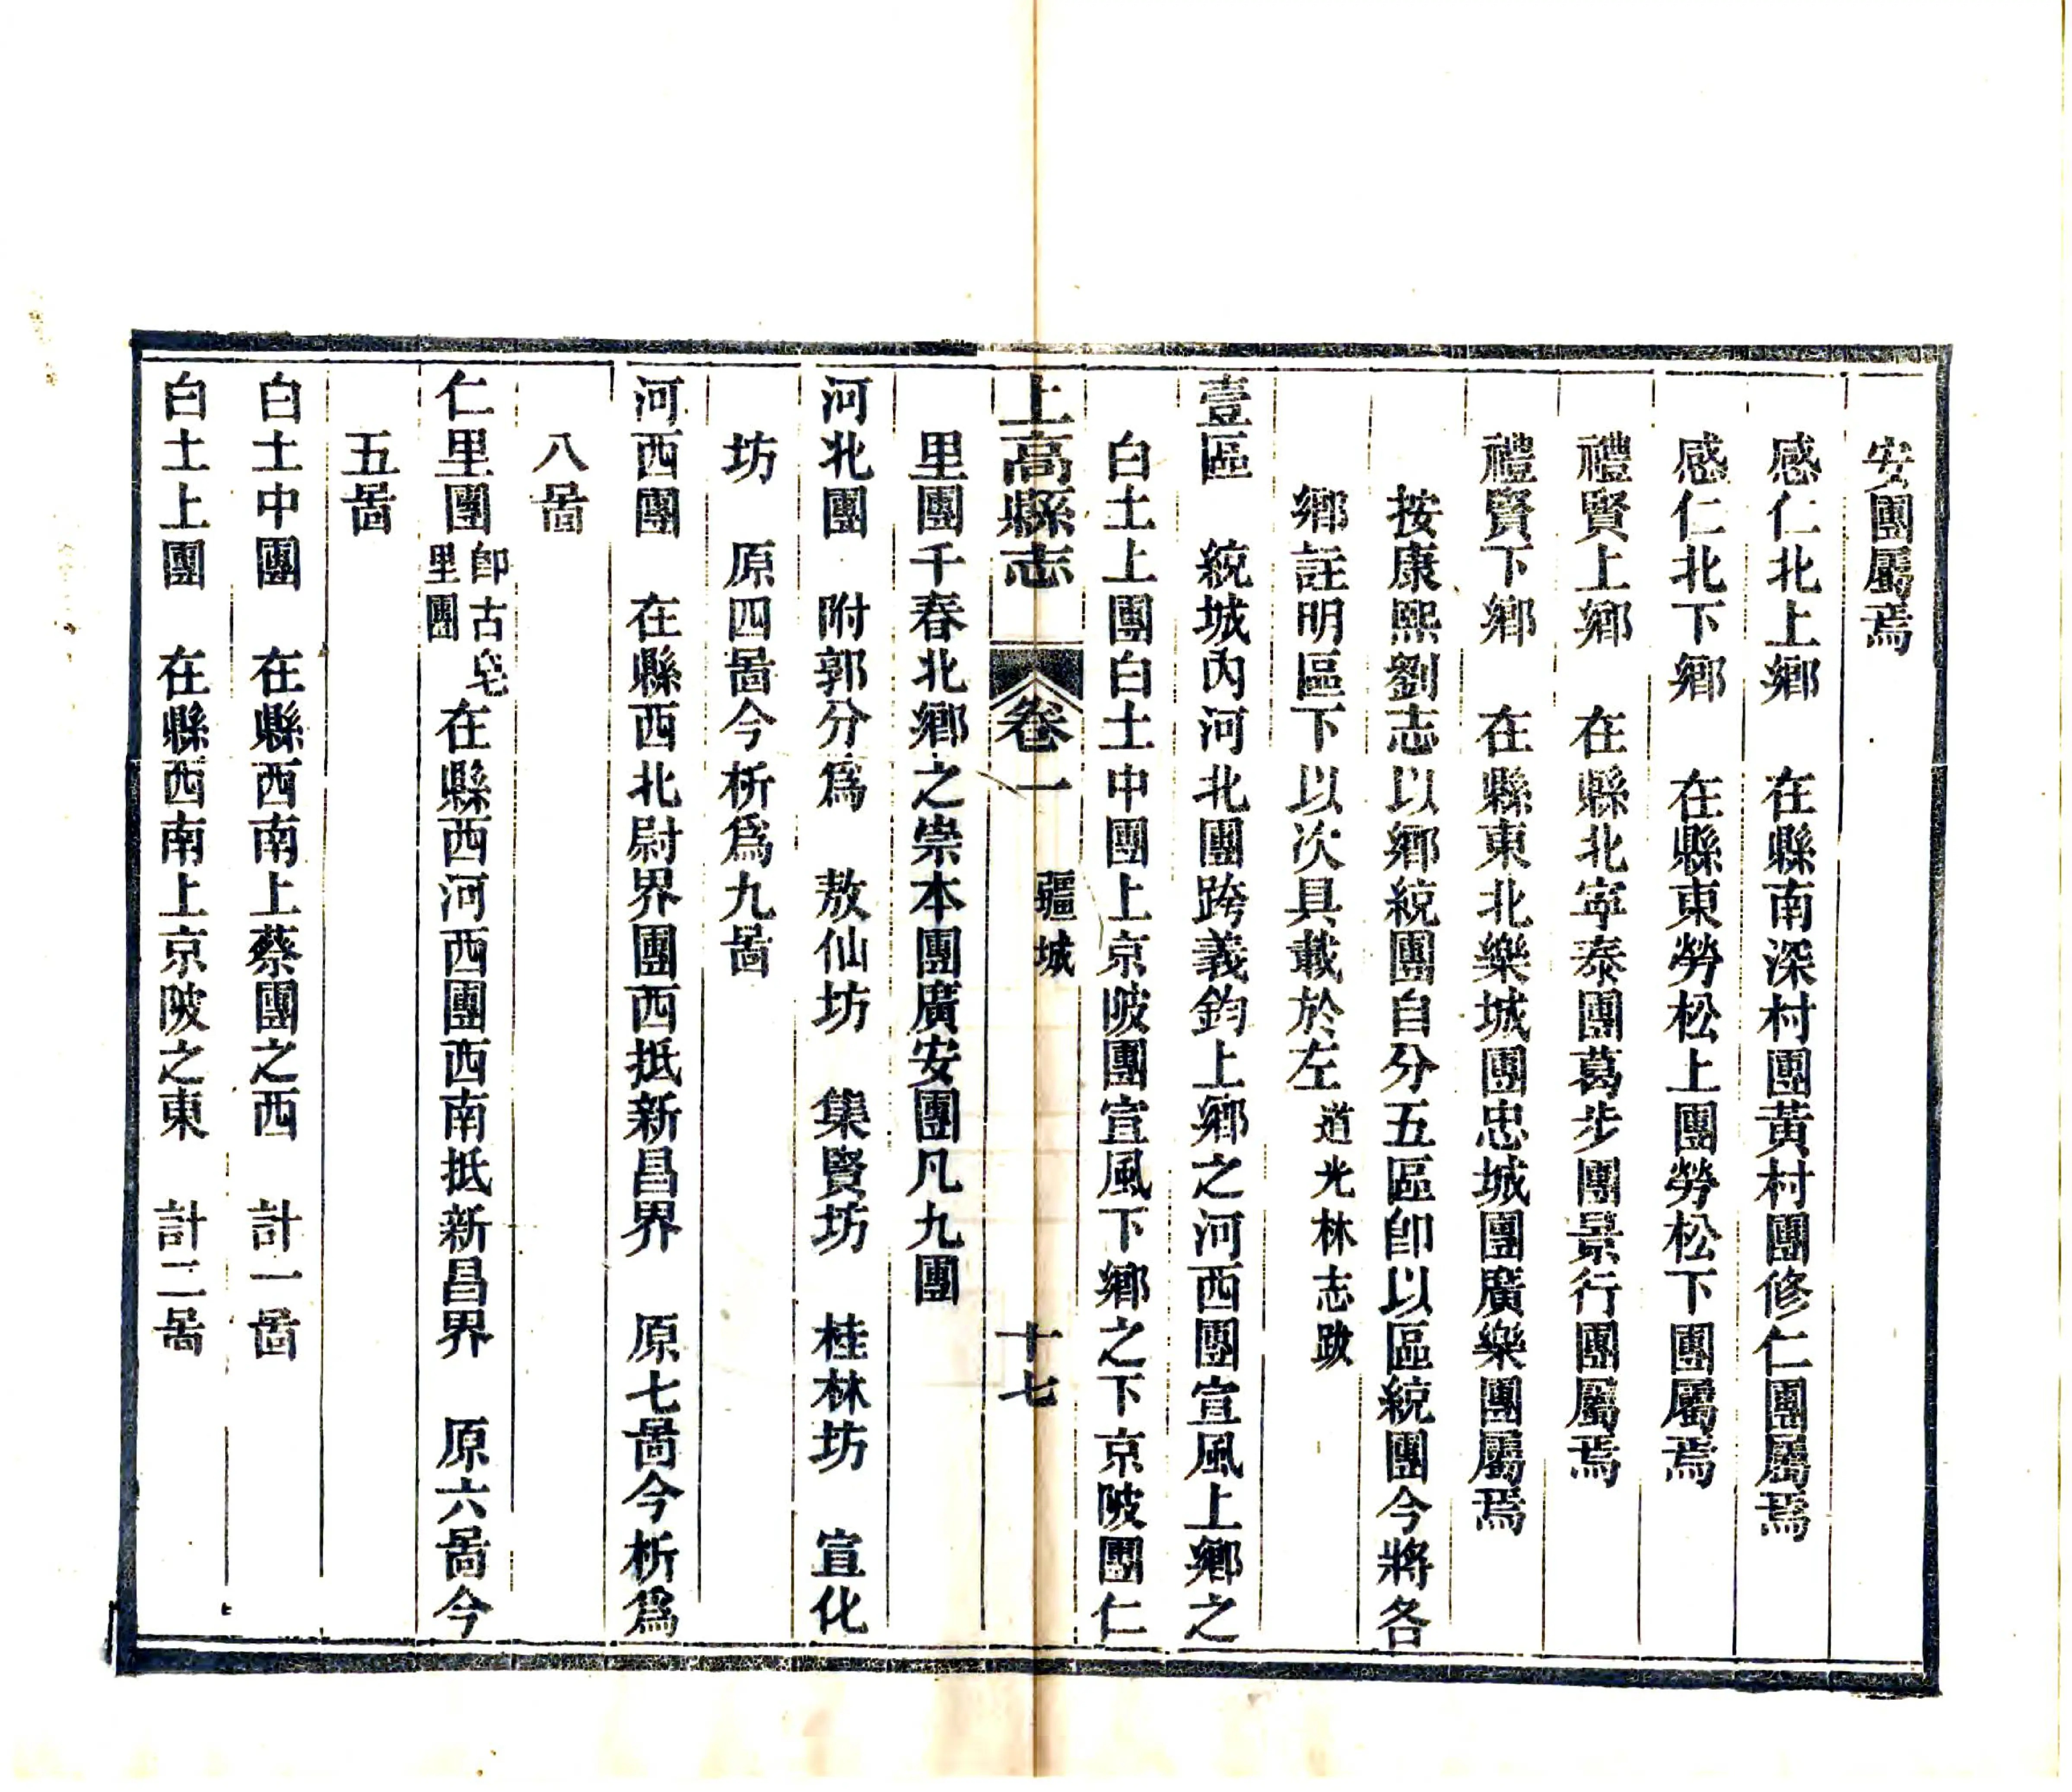 安團屬焉
感仁北上鄉　在縣南深村團黃村團修仁團屬焉
感仁北下鄉　在縣東勞松上團勞松下團屬焉
禮賢上鄉　在縣北寜泰團葛步團景行團屬焉
禮賢下鄉　在縣東北樂城團忠城團廣樂團屬焉
按康熙劉志以鄉統團自分五區卽以區統團今將各
鄉註明區下以次具載於左道光林志跋
壹區　統城內河北團跨義鈞上鄉之河西團宣風上鄉之
白土上團白土中團上京陂團宣風下鄉之下京陂團仁
上高縣志　卷一　疆域　十七
里團千春北鄉之崇本團廣安團凡九團
河北團　附郭分爲　敖仙坊　集賢坊　桂林坊　宣化
坊　原四啚今析爲九啚
河西團　在縣西北尉界團西抵新昌界　原七啚今析爲
八啚
仁里團卽古皂里團在縣西河西團西南抵新昌界　原六啚今
五啚
白土中團　在縣西南上蔡團之西　計一啚
白土上團　在縣西南上京陂之東　計二啚